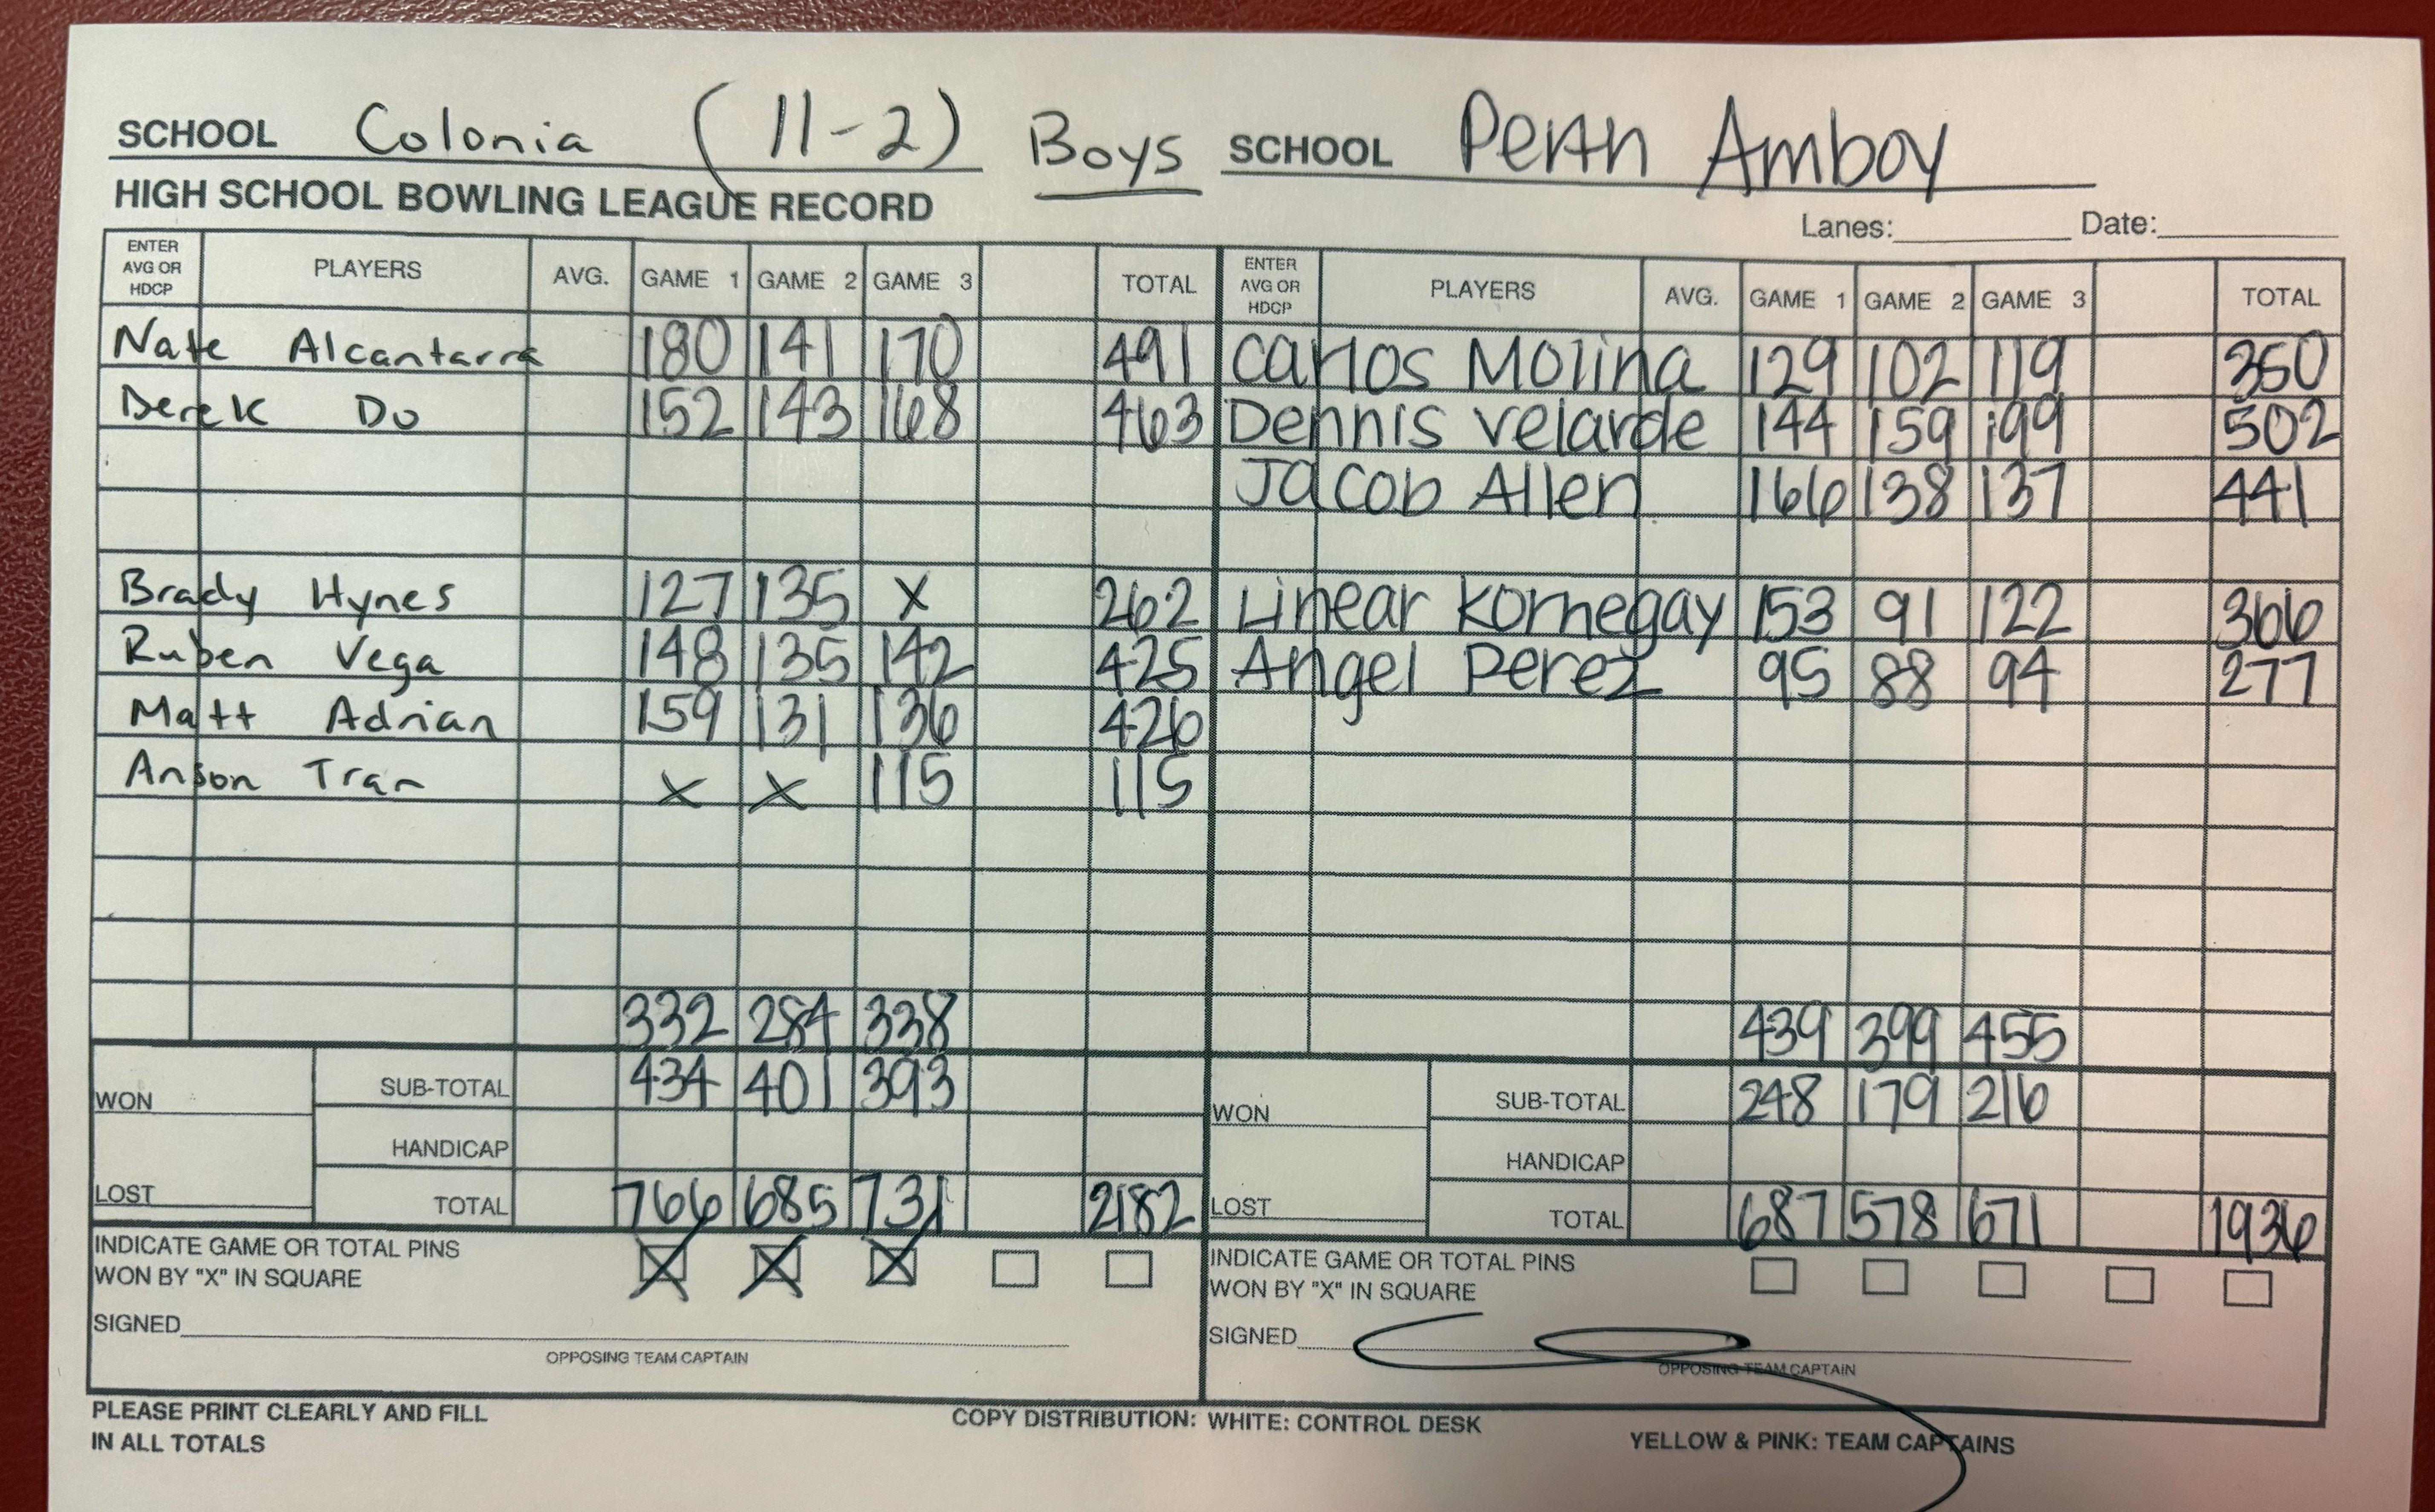 SCHOOL Colonia (11-2) Boys SCHOOL Perth Amboy
HIGH SCHOOL BOWLING LEAGUE RECORD
Lanes: Date:
ENTER AVG OR HDCP PLAYERS AVG. GAME 1 GAME 2 GAME 3 TOTAL ENTER AVG OR HDCP PLAYERS AVG. GAME 1 GAME 2 GAME 3 TOTAL
Nate Alcantarra 180 141 170 491 Carlos Molina 129 102 119 350
Derek Do 152 143 168 463 Dennis Velarde 144 159 199 502
Jacob Allen 166 138 137 441
Brady Hynes 127 135 X 262 Linear Kornegay 153 91 122 366
Ruben Vega 148 135 142 425 Angel Perez 95 88 94 277
Matt Adrian 159 131 136 426
Anson Tran X X 115 115
332 284 338 439 399 455
WON SUB-TOTAL 434 401 393 WON SUB-TOTAL 248 179 216
HANDICAP HANDICAP
LOST TOTAL 766 685 731 2182 LOST TOTAL 687 578 671 1936
INDICATE GAME OR TOTAL PINS INDICATE GAME OR TOTAL PINS
WON BY "X" IN SQUARE X X X WON BY "X" IN SQUARE
SIGNED SIGNED
OPPOSING TEAM CAPTAIN OPPOSING TEAM CAPTAIN
PLEASE PRINT CLEARLY AND FILL
IN ALL TOTALS
COPY DISTRIBUTION: WHITE: CONTROL DESK
YELLOW & PINK: TEAM CAPTAINS